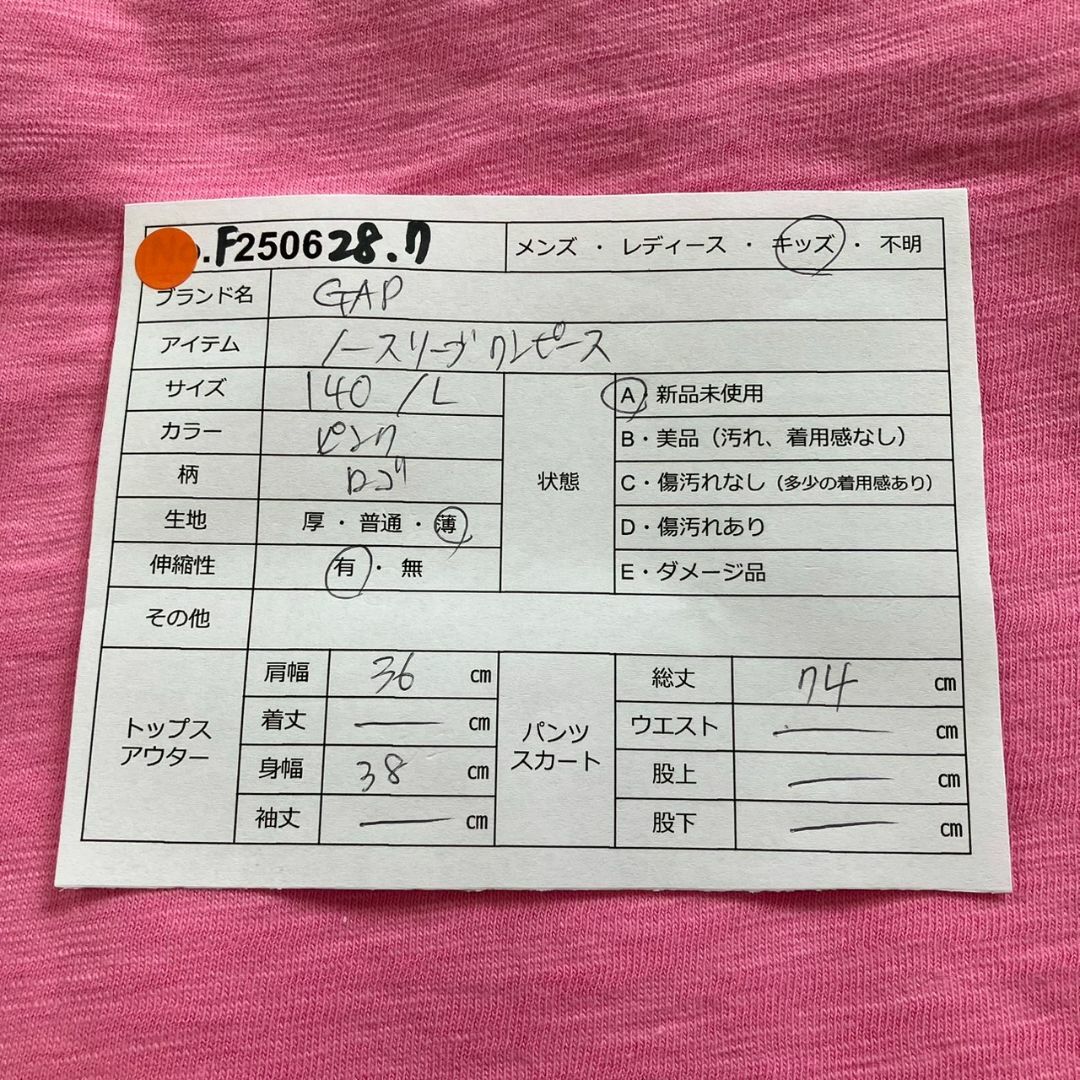 No.F250628.7 メンズ ・ レディース ・ キッズ ・ 不明
ブランド名 GAP
アイテム ノースリーブワンピース
サイズ 140/L
カラー ピンク
柄 ロゴ
生地 厚 ・ 普通 ・ 薄
伸縮性 有 ・ 無
状態
A・新品未使用
B・美品(汚れ、着用感なし)
C・傷汚れなし(多少の着用感あり)
D・傷汚れあり
E・ダメージ品
その他
トップス
アウター
肩幅 36 cm
着丈 — cm
身幅 38 cm
袖丈 — cm
パンツ
スカート
総丈 74 cm
ウエスト — cm
股上 — cm
股下 — cm